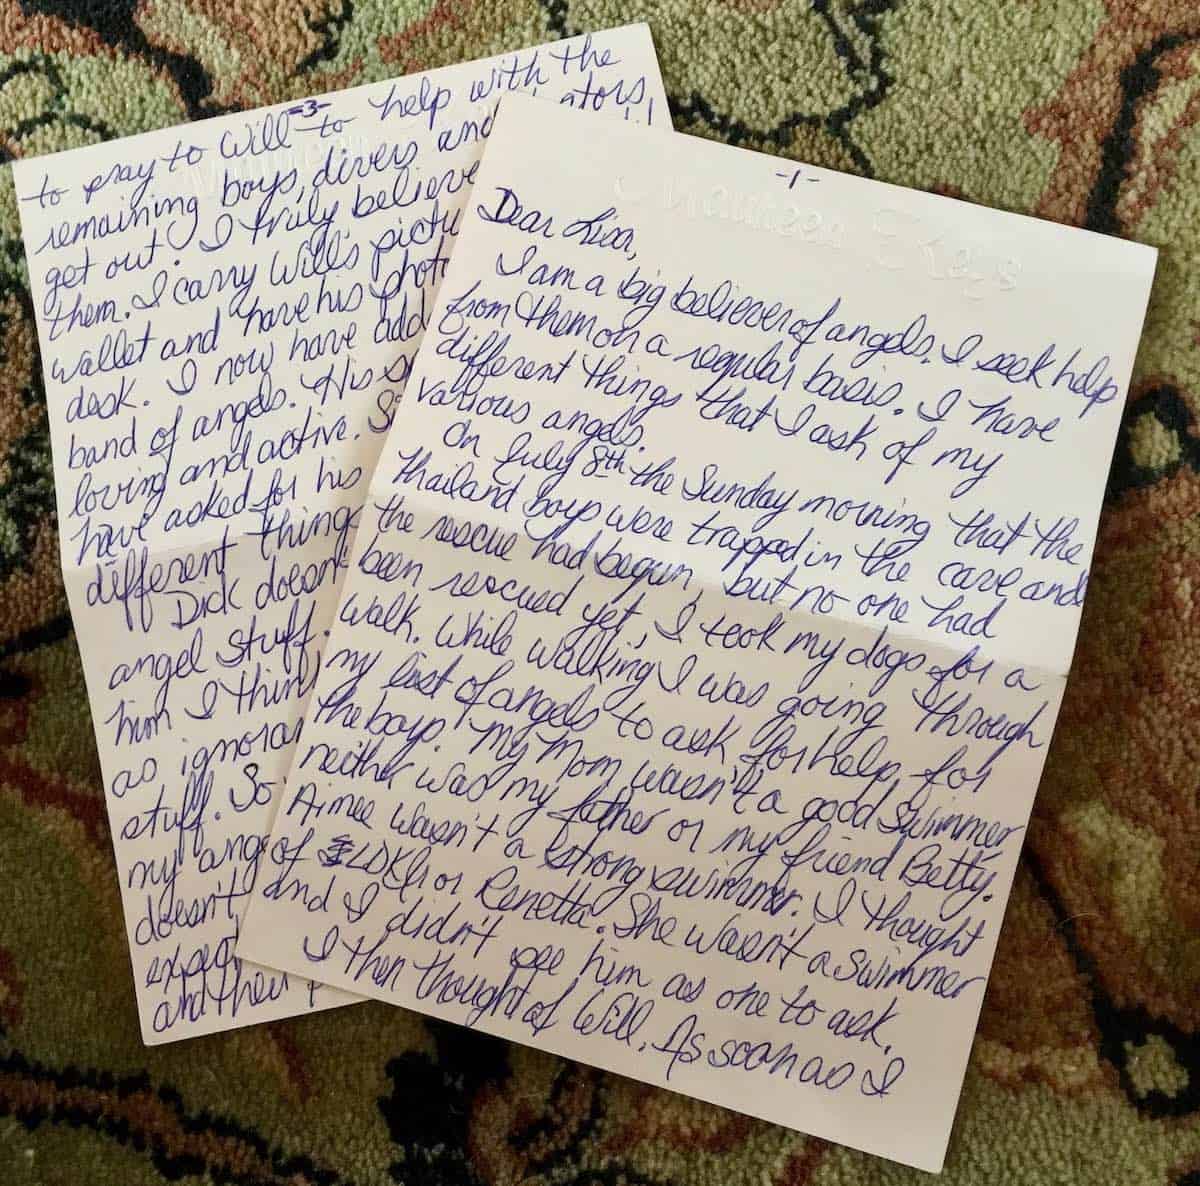 -3-
to pray to Will to help with the
remaining boys, divers and ators,
get out. I truly believe
them. I carry Will's pictu
wallet and have his phot
desk. I now have add
band of angels. His s
loving and active. S
have asked for his
different thing
Dick doesn't
angel stuff.
him I thin
as ignora
stuff. So
my ang
doesn't
expec
and their p
-1-
Maureen E Kays
Dear Lisa,
I am a big believer of angels. I seek help
from them on a regular basis. I have
different things that I ask of my
various angels.
On July 8th the Sunday morning that the
Thailand boys were trapped in the cave and
the rescue had begun, but no one had
been rescued yet, I took my dogs for a
walk. While walking I was going through
my list of angels to ask for help for
the boys. My Mom wasn't a good swimmer
neither was my father or my friend Betty.
Aimee wasn't a strong swimmer. I thought
of or Renetta. She wasn't a swimmer
and I didn't see him as one to ask.
I then thought of Will. As soon as I